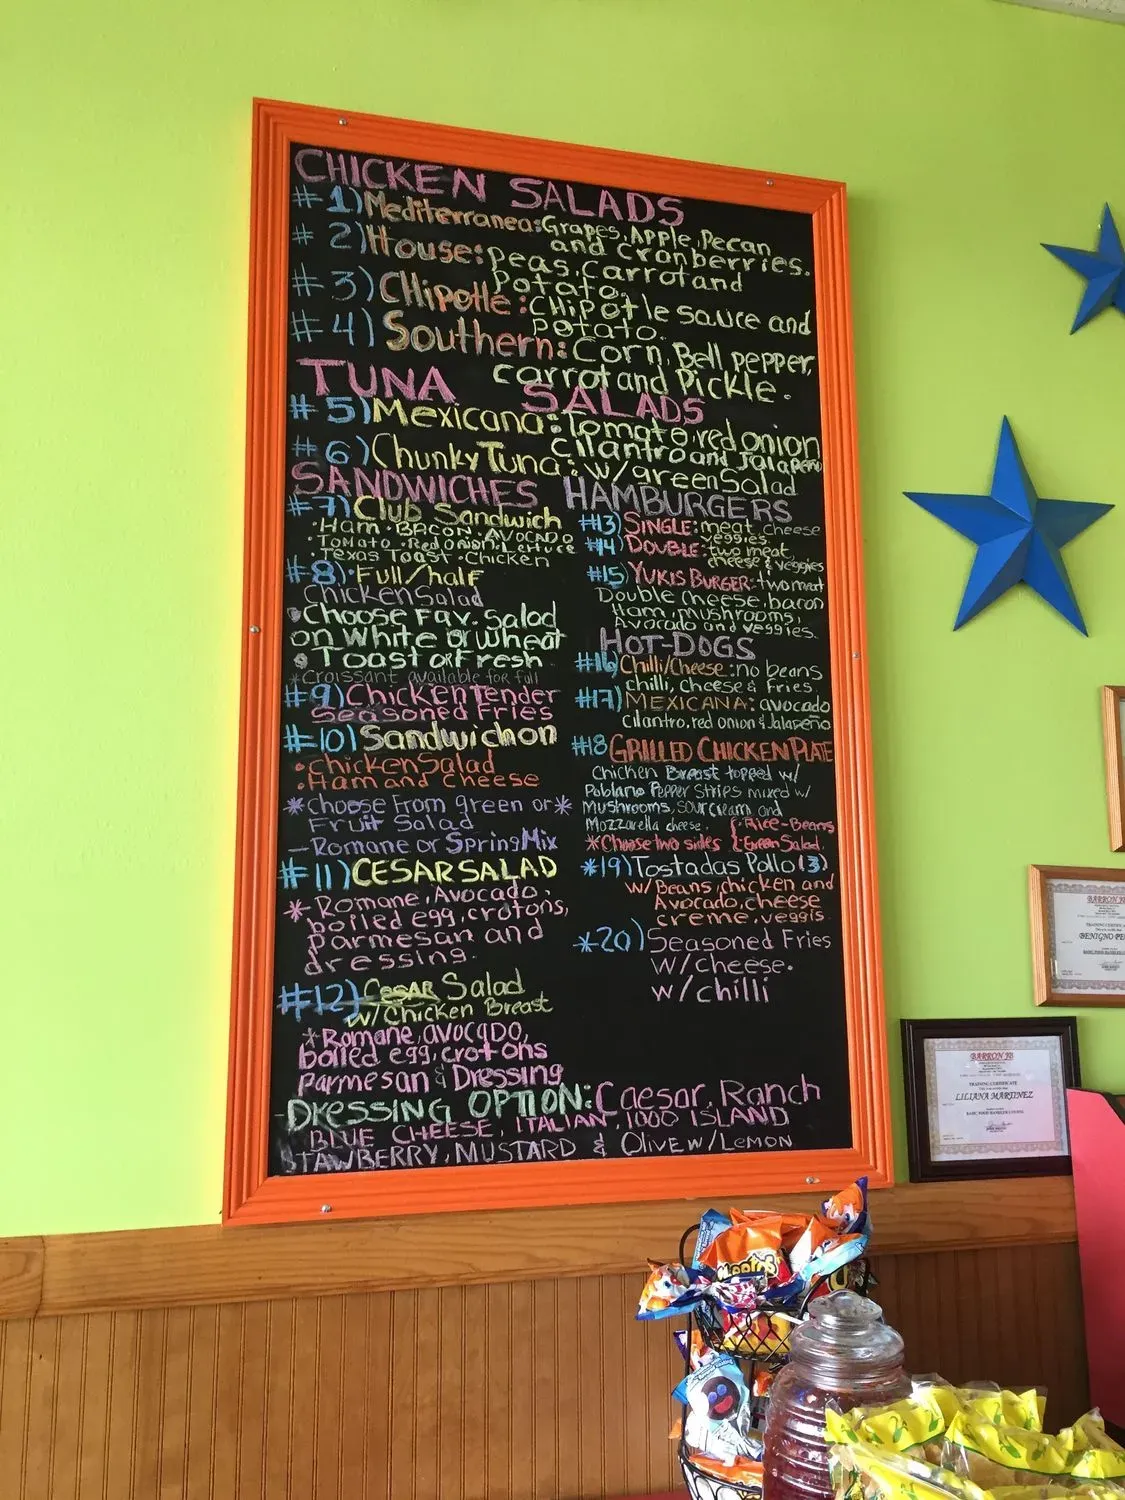 CHICKEN SALADS
# 1) Mediterranea: Grapes, Apple, Pecan
and Cranberries.
# 2) House: peas, carrot and
Potato.
# 3) CHipotle: CHipotle sauce and
potato.
# 4) Southern: Corn, Bell pepper,
carrot and Pickle.
TUNA SALADS
# 5) Mexicana: Tomato, red onion
cilantro and Jalapeño
# 6) Chunky Tuna: w/ green Salad
SANDWICHES
# 7) Club Sandwich
• Ham • BACON • AVOCADO
• Tomato • Red Onion • Lettuce
• Texas Toast • Chicken
# 8) • Full/half
Chicken Salad
• Choose Fav. Salad
on White or Wheat
• Toast or Fresh
*Croissant available for full
# 9) Chicken Tender
Seasoned Fries
# 10) Sandwichon
• chicken Salad
• Ham and cheese
* choose From green or *
Fruit Salad
- Romane or Spring Mix
# 11) CESAR SALAD
* Romane, Avocado,
boiled egg, crotons,
parmesan and
dressing.
# 12) Cesar Salad
w/ Chicken Breast
* Romane, avocado,
boiled egg, crotons
parmesan & Dressing
HAMBURGERS
#13) SINGLE: meat cheese
veggies.
#14) DOUBLE: two meat
cheese & veggies
#15) YUKIS BURGER: two meat
Double cheese, bacon
Ham, mushrooms,
Avocado and veggies.
HOT-DOGS
#16) Chilli/Cheese: no beans
chilli, cheese & Fries
#17) MEXICANA: avocado
cilantro, red onion & Jalapeño
#18 GRILLED CHICKEN PLATE
Chicken Breast topped w/
Poblano Pepper Strips mixed w/
Mushrooms, sour cream and
Mozzarella cheese. • Rice - Beans
*Choose two sides • Green Salad.
*19) Tostadas Pollo (3)
w/ Beans, chicken and
Avocado, cheese
creme, veggis.
*20) Seasoned Fries
w/ cheese.
w/ chilli
-DRESSING OPTION: Caesar, Ranch
BLUE CHEESE, ITALIAN, 1000 ISLAND
STAWBERRY, MUSTARD & Olive w/ Lemon
BARRON
TRAINING CERTIFICATE
BENIGNO
BARRON
TRAINING CERTIFICATE
LILIANA MARTINEZ